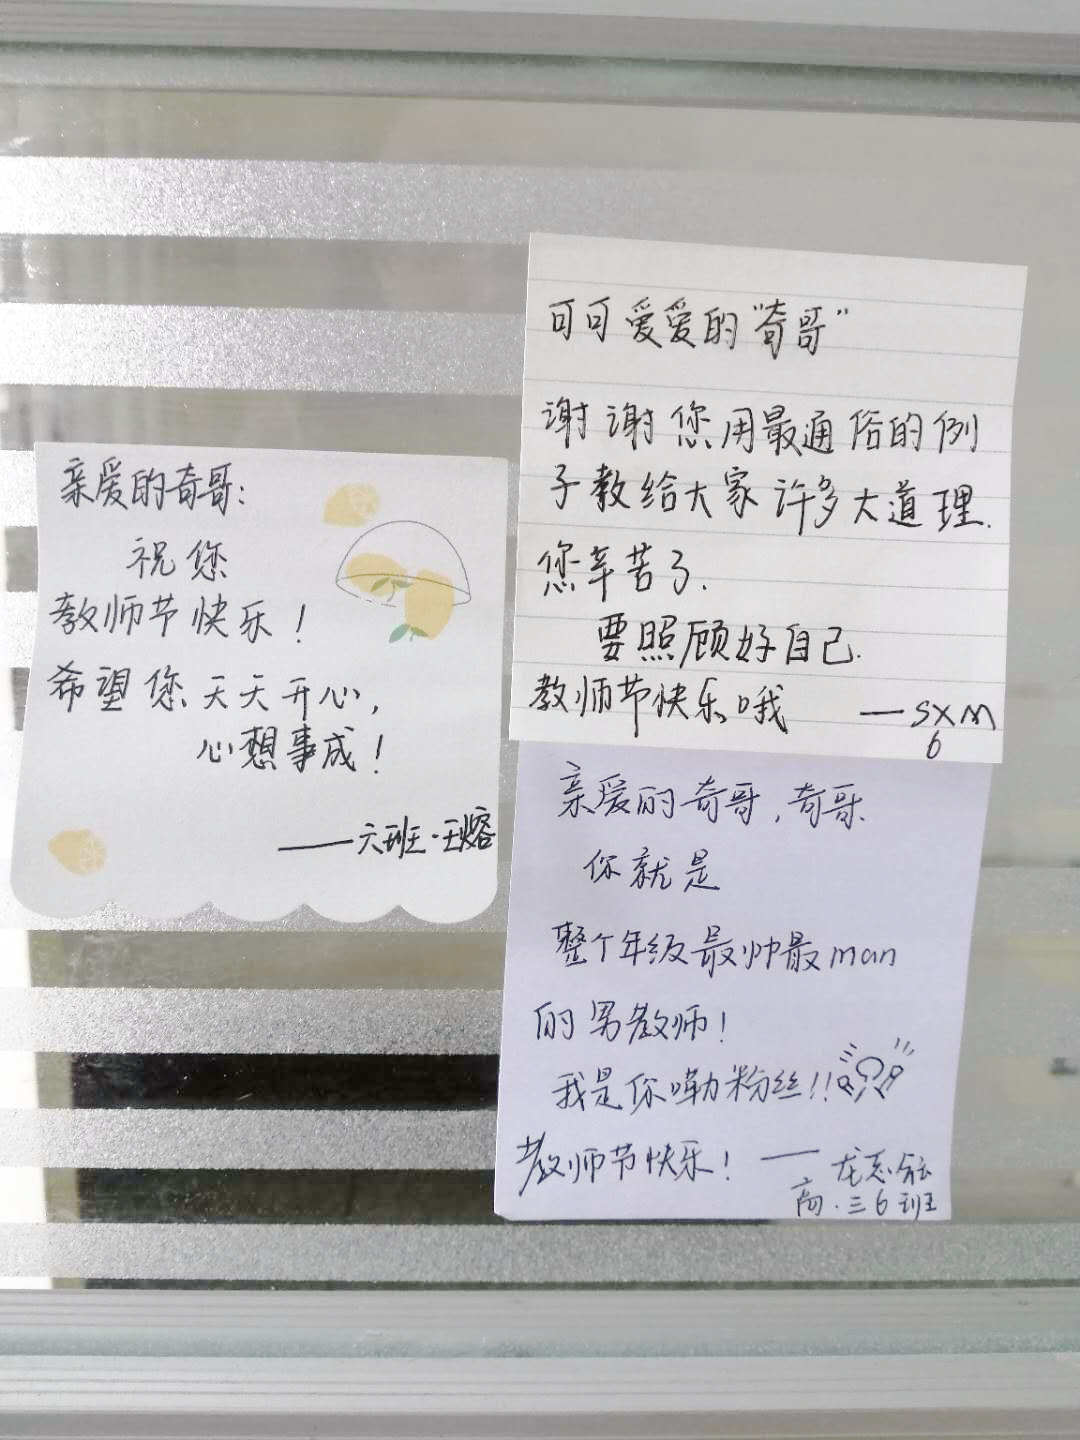 亲爱的奇哥：
祝您
教师节快乐！
希望您天天开心，
心想事成！
——六班·王熔
可可爱爱的“奇哥”
谢谢您用最通俗的例
子教给大家许多大道理.
您辛苦了.
要照顾好自己.
教师节快乐哦 —SXM
6
亲爱的奇哥，奇哥.
你就是
整个年级最帅最man
的男教师！
我是你嘞粉丝!!
教师节快乐！ —龙
高.三6班